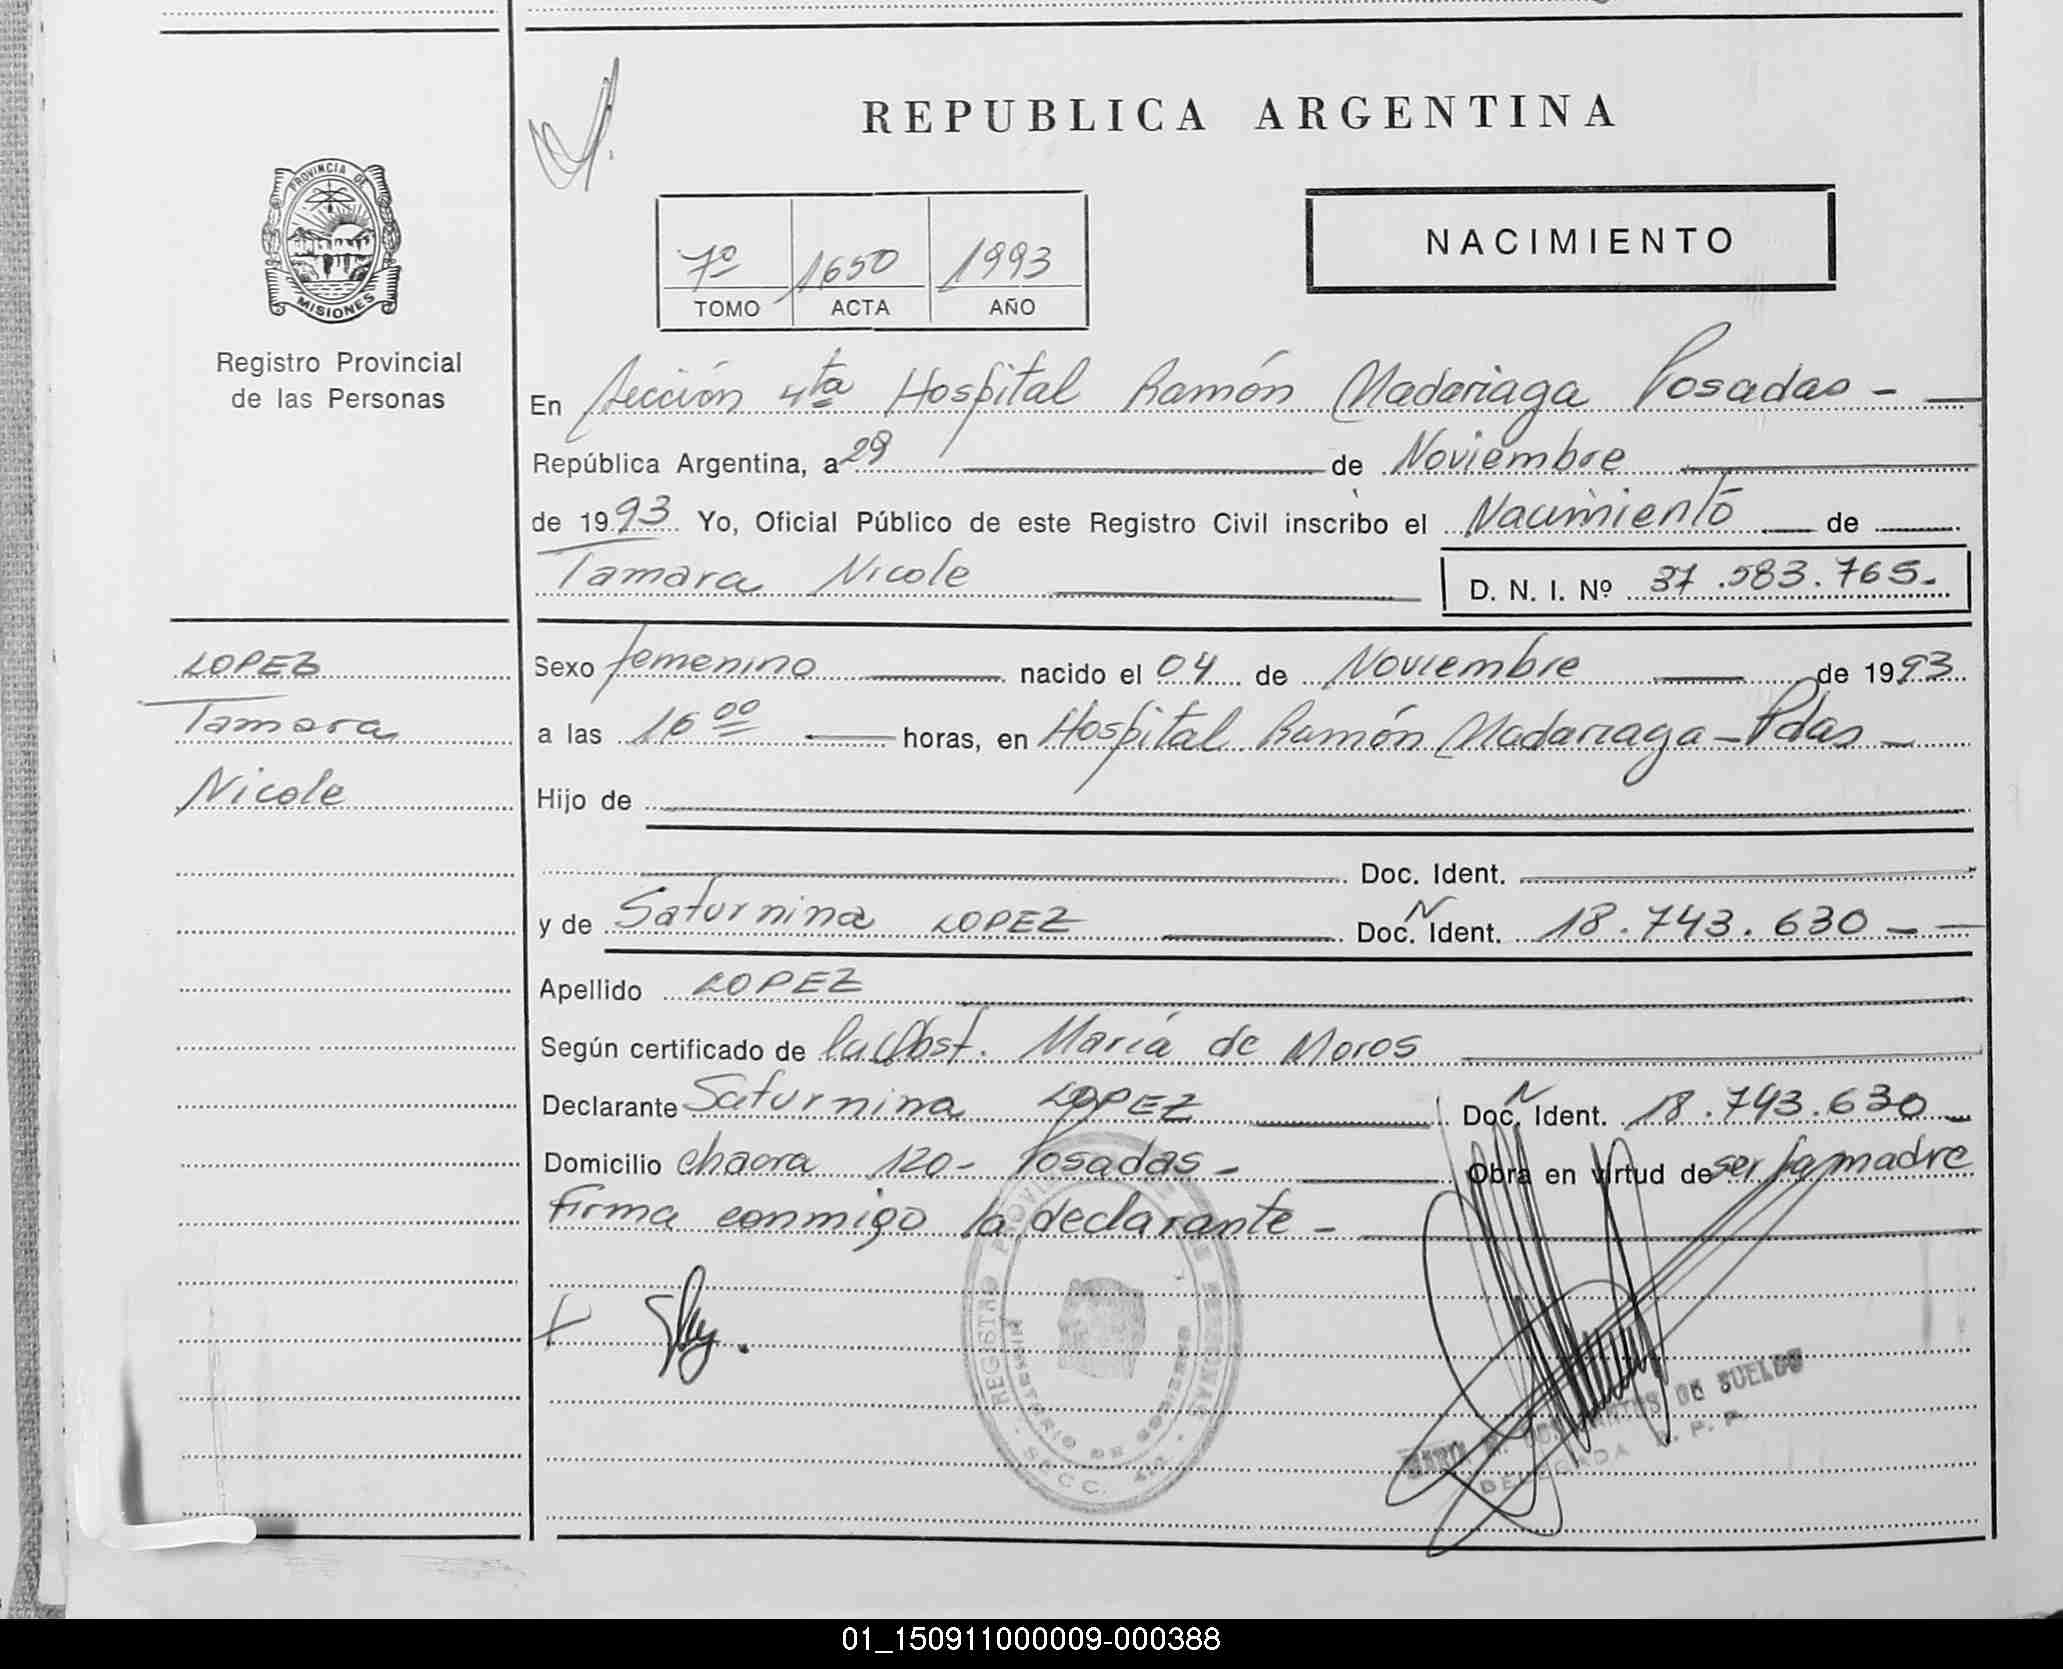 REPUBLICA ARGENTINA
PROVINCIA DE
MISIONES
Registro Provincial
de las Personas
7º 1650 1993
TOMO ACTA AÑO
NACIMIENTO
En Sección 4ta Hospital Ramón Madariaga Posadas -
República Argentina, a 29 de Noviembre
de 1993 Yo, Oficial Público de este Registro Civil inscribo el Nacimiento de
Tamara Nicole D. N. I. Nº 37.583.765.-
LOPEZ
Tamara
Nicole
Sexo femenino nacido el 04 de Noviembre de 1993
a las 16 00 horas, en Hospital Ramón Madariaga - Pdas -
Hijo de
Doc. Ident.
y de Saturnina LOPEZ Doc. N Ident. 18.743.630 - -
Apellido LOPEZ
Según certificado de la Obst. María de Moros
Declarante Saturnina LOPEZ Doc. N Ident. 18.743.630 -
Domicilio chacra 120 - Posadas - Obra en virtud de ser la madre
firma conmigo la declarante -
REGISTRO PROVINCIAL DE LAS PERSONAS
MINISTERIO DE GOBIERNO
SECC. 4ta
DE SUELDO
DELEGADA R. P. P.
01_150911000009-000388